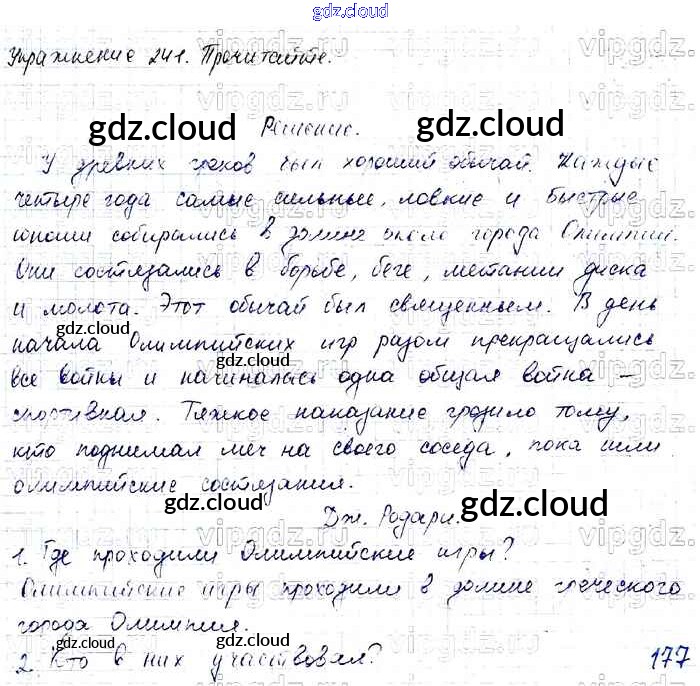 gdz.cloud
Упражнение 241. Прочитайте.
Решение.
У древних греков был хороший обычай. Каждые
четыре года самые сильные, ловкие и быстрые
юноши собирались в долине около города Олимпии.
Они состязались в борьбе, беге, метании диска
и молота. Этот обычай был священным. В день
начала Олимпийских игр разом прекращались
все войны и начиналась одна общая война –
спортивная. Тяжкое наказание грозило тому,
кто поднимал меч на своего соседа, пока шли
олимпийские состязания.
Дж. Родари.
1. Где проходили Олимпийские игры?
Олимпийские игры проходили в долине греческого
города Олимпия.
2. Кто в них участвовал?
177